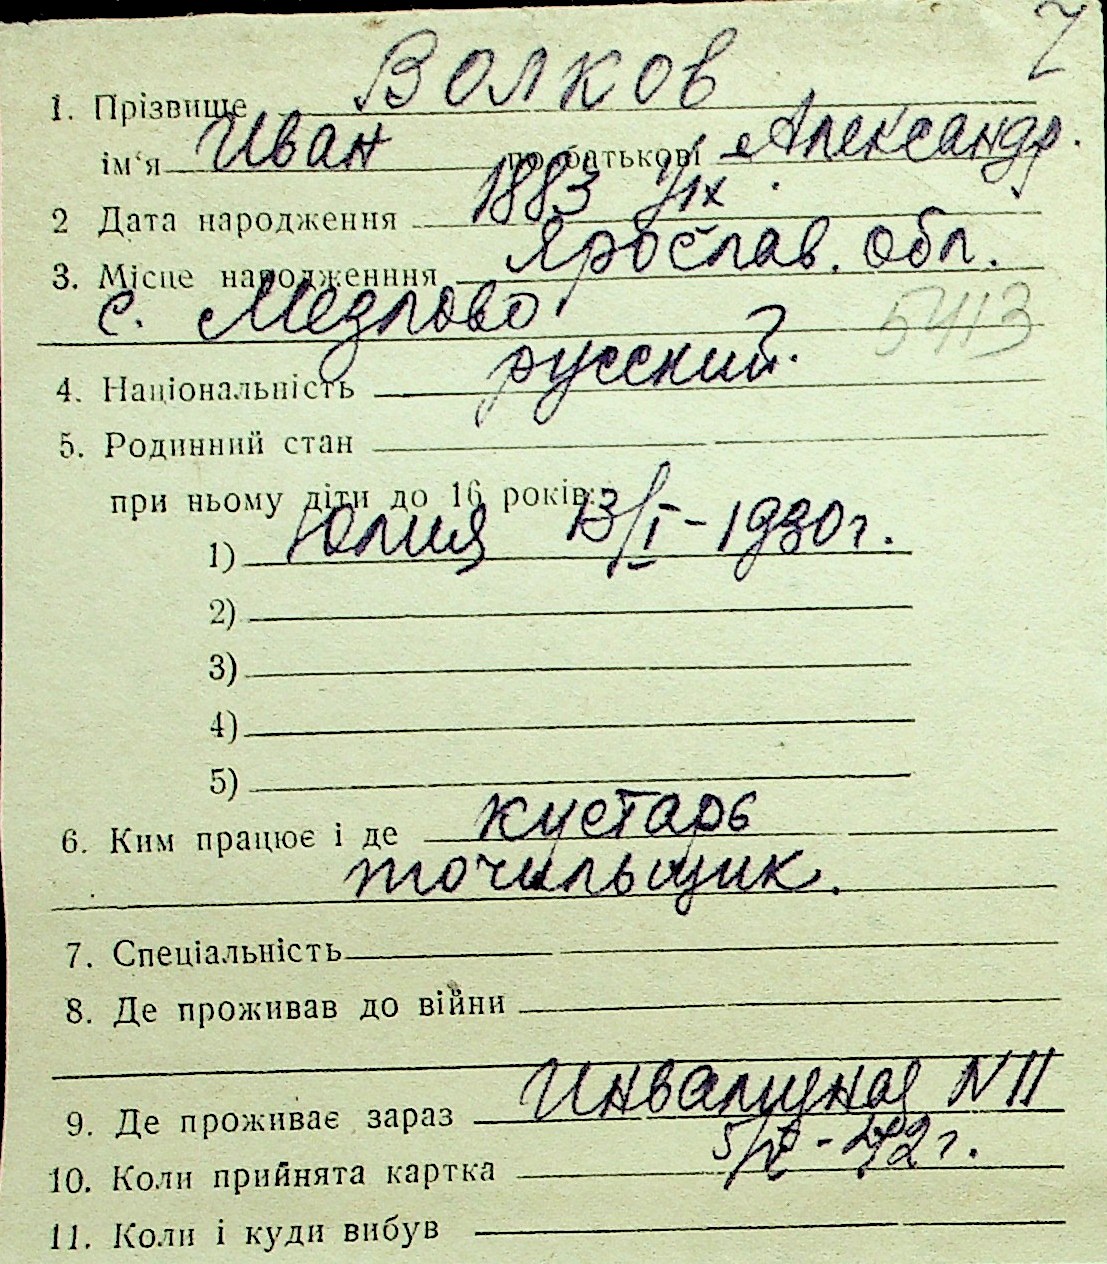 1. Прізвище Волков
ім'я Иван по батькові Александр.
2 Дата народження 1883 1/IX.
3. Місце народженння Ярослав. обл.
с. Медлово
5413
4. Національність русский.
5. Родинний стан
при ньому діти до 16 років:
1) Юлия 13/I-1930г.
2)
3)
4)
5)
6. Ким працює і де кустарь
точильщик.
7. Спеціальність
8. Де проживав до війни
9. Де проживає зараз N 11
10. Коли прийнята картка 42 г.
11. Коли і куди вибув